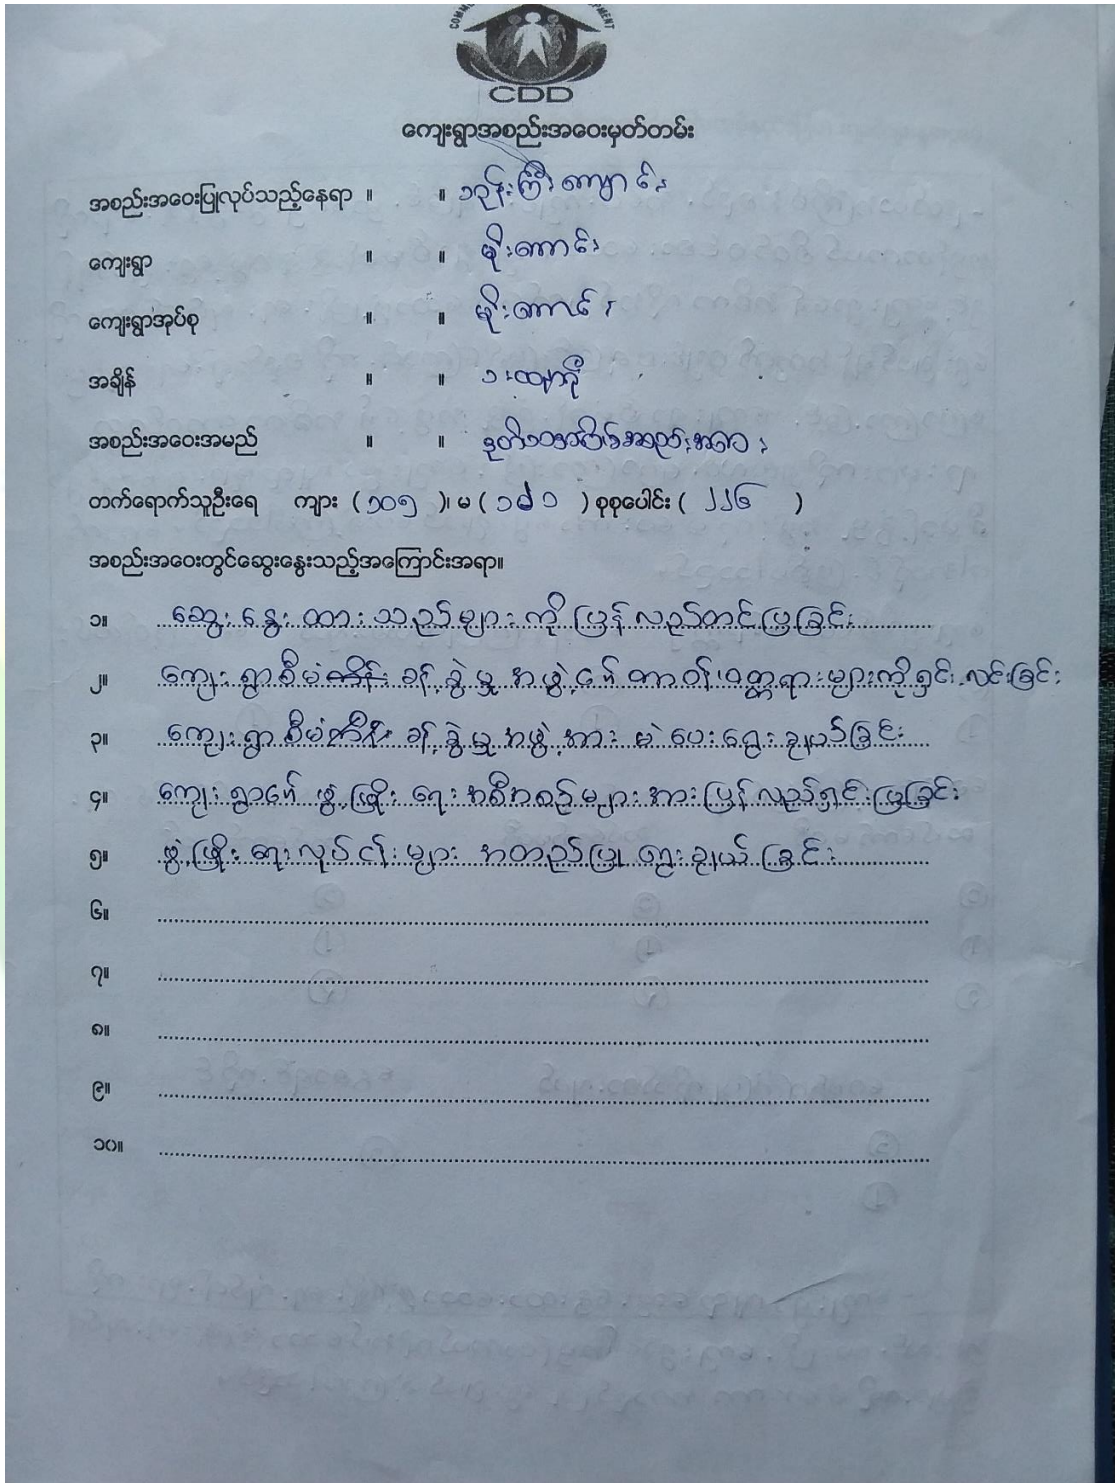 CDD
ကျေးရွာအစည်းအဝေးမှတ်တမ်း
အစည်းအဝေးပြုလုပ်သည့်နေရာ ။ ။ ဘုန်းကြီးကျောင်း
ကျေးရွာ ။ ။ မိုးကောင်း
ကျေးရွာအုပ်စု ။ ။ မိုးကောင်း
အချိန် ။ ။ ၁း
အစည်းအဝေးအမည် ။ ။ ဒုတိယအကြိမ်အစည်းအဝေး
တက်ရောက်သူဦးရေ ကျား (၁၀၅)၊ မ (၁၂၁) စုစုပေါင်း (၂၂၆)
အစည်းအဝေးတွင်ဆွေးနွေးသည့်အကြောင်းအရာ။
၁။ ဆွေးနွေးထားသည်များကိုပြန်လည်တင်ပြခြင်း
၂။ ကျေးရွာစီမံကိန်းခန့်ခွဲမှုအဖွဲ့၏တာဝန်ဝတ္တရားများကိုရှင်းလင်းခြင်း
၃။ ကျေးရွာစီမံကိန်းခန့်ခွဲမှုအဖွဲ့အားမဲပေးရွေးချယ်ခြင်း
၄။ ကျေးရွာ၏ဖွံ့ဖြိုးရေးအစီအစဉ်များအားပြန်လည်ရှင်းပြခြင်း
၅။ ဖွံ့ဖြိုးရေးလုပ်ငန်းများအတည်ပြုရွေးချယ်ခြင်း
၆။
၇။
၈။
၉။
၁၀။